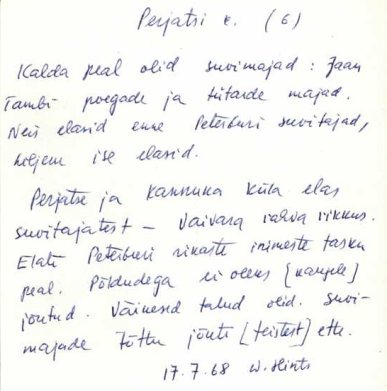 Perjatsi k. (6)
Kalda peal olid suvimajad : Jaan
Tambi poegade ja tütarde majad.
Neis elasid enne Peterburi suvitajad,
hiljem ise elasid.
Perjatse ja Kannuka küla elas
suvitajatest – Vaivara rahva rikkus.
Elati Peterburi rikaste inimeste tasku
peal. Põldudega ei oleks [kaugele]
jõutud. Väikesed talud olid. Suvi-
majade tõttu jõuti [teistest] ette.
17.7.68 W. Hints